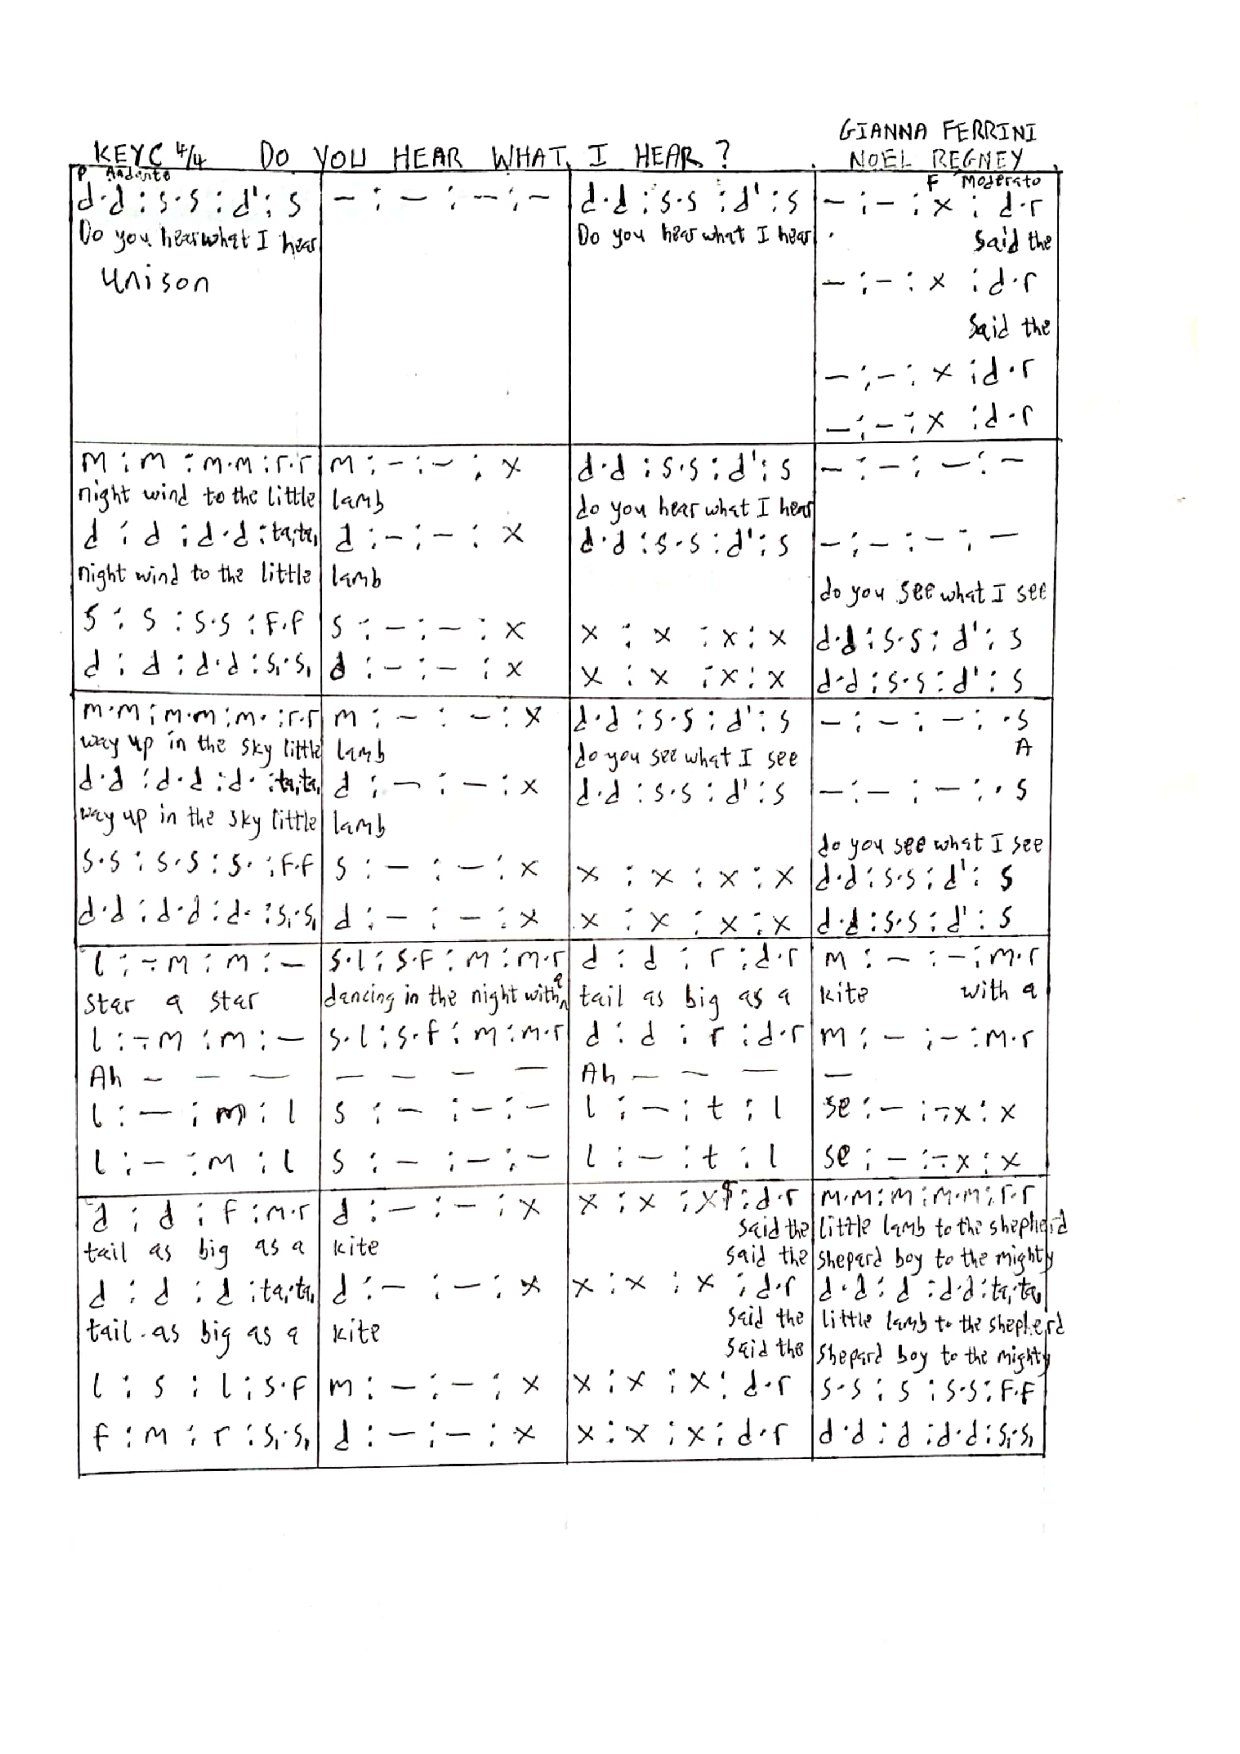 GIANNA FERRINI
KEY C 4/4 DO YOU HEAR WHAT I HEAR? NOEL REGNEY
P Andante F Moderato
d.d : s.s : d' : s | – : – : – : – | d.d : s.s : d' : s | – : – : x : d.r
Do you hear what I hear Do you hear what I hear Said the
Unison – : – : x : d.r
Said the
– : – : x : d.r
– : – : x : d.r
m : m : m.m : r.r | m : – : – : x | d.d : s.s : d' : s | – : – : – : –
night wind to the little lamb do you hear what I hear
d : d : d.d : ta,ta, | d : – : – : x | d.d : s.s : d' : s | – : – : – : –
night wind to the little lamb do you see what I see
s : s : s.s : f.f | s : – : – : x | x : x : x : x | d.d : s.s : d' : s
d : d : d.d : s,.s, | d : – : – : x | x : x : x : x | d.d : s.s : d' : s
m.m : m.m : m. : r.r | m : – : – : x | d.d : s.s : d' : s | – : – : – : .s
way up in the sky little lamb do you see what I see A
d.d : d.d : d. : ta,ta, | d : – : – : x | d.d : s.s : d' : s | – : – : – : .s
way up in the sky little lamb do you see what I see
s.s : s.s : s. : f.f | s : – : – : x | x : x : x : x | d.d : s.s : d' : s
d.d : d.d : d. : s,.s, | d : – : – : x | x : x : x : x | d.d : s.s : d' : s
l : –.m : m : – | s.l : s.f : m : m.r | d : d : r : d.r | m : – : – : m.r
star a star dancing in the night with a tail as big as a kite with a
l : –.m : m : – | s.l : s.f : m : m.r | d : d : r : d.r | m : – : – : m.r
Ah – – – – – – – Ah – – – –
l : – : m : l | s : – : – : – | l : – : t : l | se : – : –.x : x
l : – : m : l | s : – : – : – | l : – : t : l | se : – : –.x : x
d : d : f : m.r | d : – : – : x | x : x : x f : d.r | m.m : m : m.m : r.r
tail as big as a kite said the little lamb to the shepherd
said the shepard boy to the mighty
d : d : d : ta,.ta, | d : – : – : x | x : x : x : d.r | d.d : d : d.d : ta,ta,
tail as big as a kite said the little lamb to the shepherd
said the shepard boy to the mighty
l : s : l : s.f | m : – : – : x | x : x : x : d.r | s.s : s : s.s : f.f
f : m : r : s,.s, | d : – : – : x | x : x : x : d.r | d.d : d : d.d : s,.s,